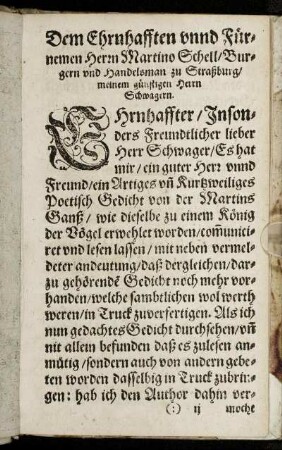 Dem Ehrnhafften vnnd Für-
nemen Herrn Martino Schell/Bur-
gern vnd Handelsman zu Straßburg/
meinem günstigen Herrn
Schwagern.
EHrnhaffter/Inson-
ders Freundtlicher lieber
Herr Schwager/Es hat
mir/ein guter Herr vnnd
Freund/ein Artiges vñ Kurtzweiliges
Poetisch Gedicht von der Martins
Ganß/wie dieselbe zu einem König
der Vögel erwehlet worden/com̃unici-
ret vnd lesen lassen/mit neben vermel-
deter andeutung/daß dergleichen/dar-
zu gehörendẽ Gedicht noch mehr vor-
handen/welche sambtlichen wol werth
weren/in Truck zuverfertigen. Als ich
nun gedachtes Gedicht durchsehen/vñ
nit allein befunden daß es zulesen an-
mütig/sondern auch von andern gebe-
ten worden dasselbig in Truck zubrin-
gen: hab ich den Author dahin ver-
(:) ij moche